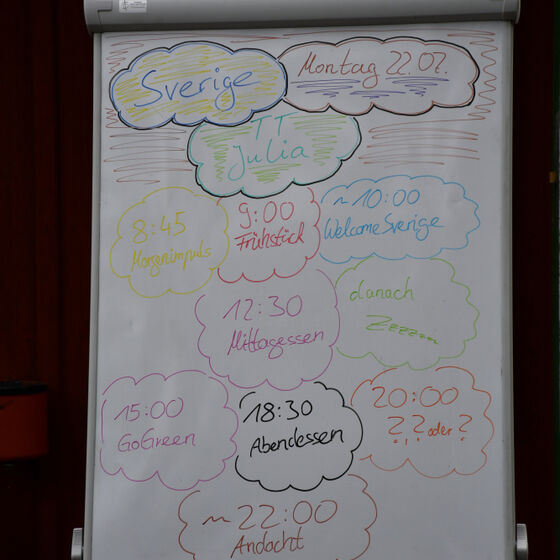 Sverige
Montag 22.07.
TT
Julia
8:45
Morgenimpuls
9:00
Frühstück
~ 10:00
Welcome Sverige
12:30
Mittagessen
danach
Zzzzz...
15:00
GoGreen
18:30
Abendessen
20:00
? ? oder ?
~ 22:00
Andacht